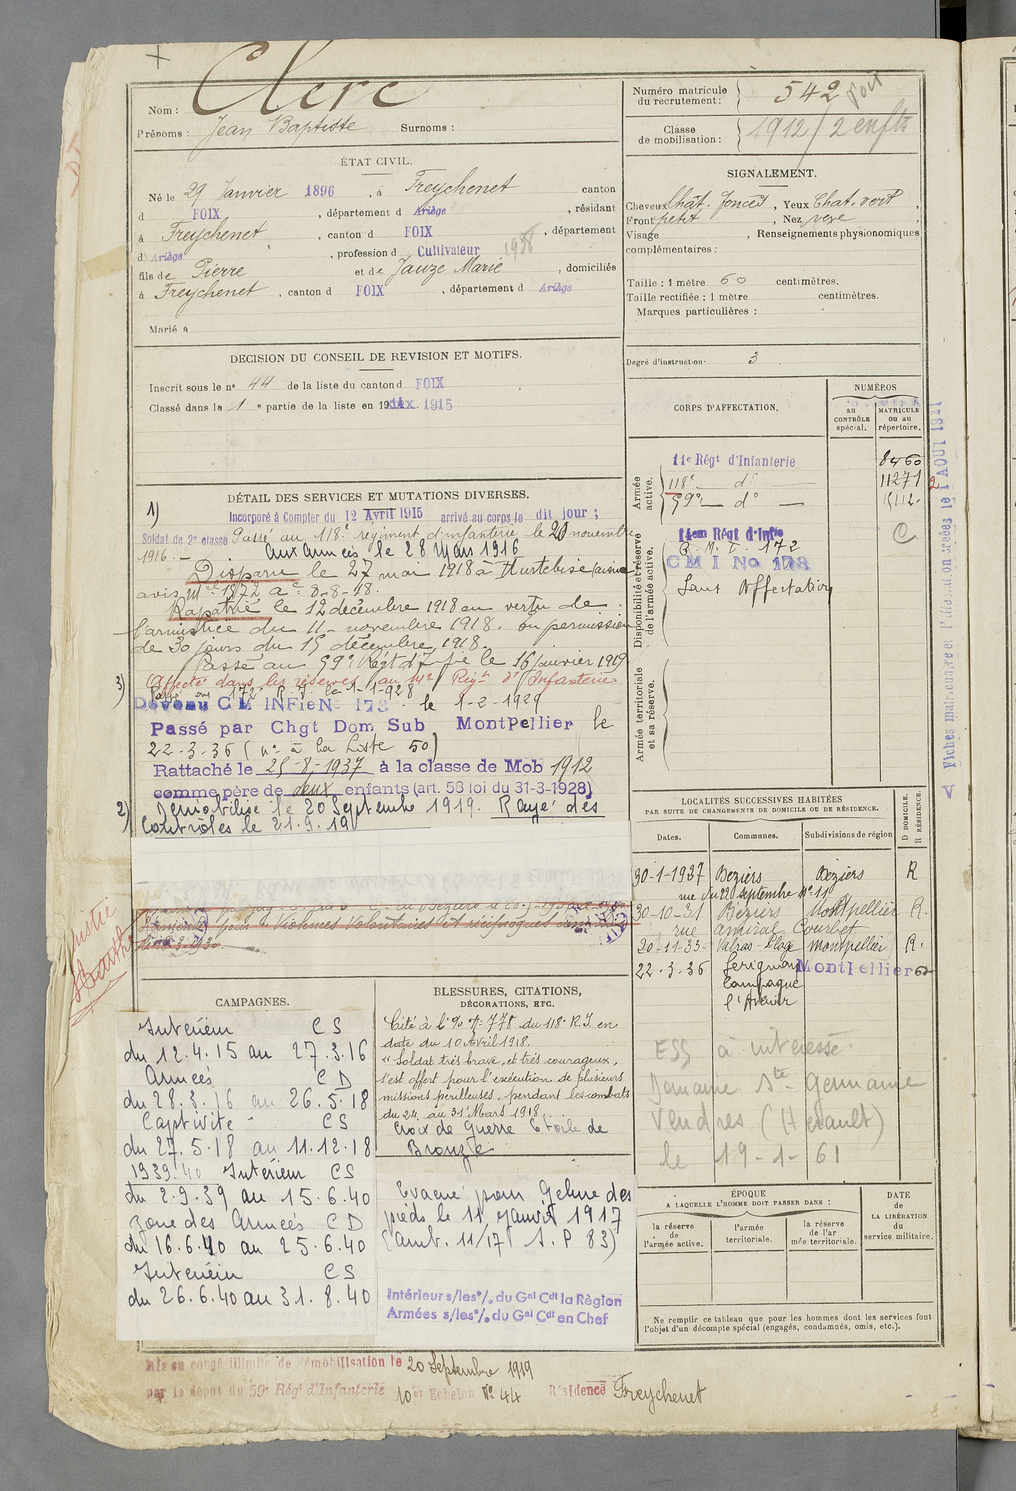 Nom : Clerc
Prénoms : Jean Baptiste Surnoms :
ÉTAT CIVIL.
Né le 29 Janvier 1896, à Freychenet canton
d FOIX, département d Ariège, résidant
à Freychenet, canton d FOIX, département
d Ariège, profession d Cultivateur 1938
fils de Pierre et de Jauze Marie, domiciliés
à Freychenet, canton d FOIX, département d Ariège
Marié à
DECISION DU CONSEIL DE REVISION ET MOTIFS.
Inscrit sous le n° 44 de la liste du canton d FOIX
Classé dans la 1 e partie de la liste en 19 1915
DÉTAIL DES SERVICES ET MUTATIONS DIVERSES.
1) Incorporé à Compter du 12 Avril 1915 arrivé au corps le dit jour ;
Soldat de 2e classe Passé au 118e régiment d'infanterie le 20 novembre
1916. — Aux Armées le 28 Mars 1916
Disparu le 27 mai 1918 à Hurtebise (aisne
avis 8-8-18.
Rapatrié le 12 décembre 1918 en vertu de
l'armistice du 11 novembre 1918. En permission
de 30 jours du 15 décembre 1918.
Passé au 59e Régt d'Ie le 16 Janvier 1919
3) Affecté dans les réserves au 14e Régt d'Infanterie
Passé au 172e R.I. le 1-1-928
Devenu C M INFie No 173. le 1-2-1929
Passé par Chgt Dom Sub Montpellier le
22-3-36 (n° à la Liste 50)
Rattaché le 25-8-1937 à la classe de Mob 1912
comme père de deux enfants (art. 58 loi du 31-3-1928)
2) Démobilisé le 20 Septembre 1919. Rayé des
Contrôles le 21.9.19
pour Violences Volontaires et réciproques
CAMPAGNES.
Intérieur CS
du 12.4.15 au 27.3.16
Armées CD
du 28.3.16 au 26.5.18
Captivité - CS
du 27.5.18 au 11.12.18
1939-40 Intérieur CS
du 2.9.39 au 15.6.40
Zone des Armées CD
du 16.6.40 au 25.6.40
Intérieur CS
du 26.6.40 au 31.8.40
BLESSURES, CITATIONS,
DÉCORATIONS, ETC.
Cité à l'% N° 778 du 118e R.I. en
date du 10 Avril 1918.
"Soldat très brave, et très courageux,
s'est offert pour l'exécution de plusieurs
missions périlleuses, pendant les combats
du 24 au 31 Mars 1918.
Croix de Guerre Etoile de
Bronze
Evacué pour Gelure des
pieds le 11 Janvier 1917
(amb. 11/17 S.P 83)
Intérieur s/les % du Gal Cdt la Région
Armées s/les % du Gal Cdt en Chef
Numéro matricule du recrutement : 542
Classe de mobilisation : 1912 / 2 enfts
SIGNALEMENT.
Cheveux Chât. foncés, Yeux Chat. vert,
Front petit, Nez vexe,
Visage , Renseignements physionomiques
complémentaires :
Taille : 1 mètre 60 centimètres.
Taille rectifiée : 1 mètre centimètres.
Marques particulières :
Degré d'instruction 3
CORPS D'AFFECTATION.
NUMÉROS
au CONTRÔLE spécial.
MATRICULE ou au répertoire.
Armée active.
11e Régt d'Infanterie 8460
118e — do — 11271
59e — do — 15112
Disponibilité et réserve de l'armée active.
14em Régt d'Infie
R.I. 172
C M I No 173
Sans Affectation
Armée territoriale et sa réserve.
Fiches matriculaire et créées le 1 AOUT 1921
LOCALITÉS SUCCESSIVES HABITÉES
PAR SUITE DE CHANGEMENTS DE DOMICILE OU DE RÉSIDENCE.
Dates. Communes. Subdivisions de région
D DOMICILE. R RÉSIDENCE.
30-1-1927 Beziers Beziers R
rue du 22 septembre N° 11
30-10-31 Béziers Montpellier R.
rue Amiral Courbet
20-11-33 Valras-Plage Montpellier R.
22-3-36 Serignan Montpellier
Campagne
l'Avenir
ESS à intéressé.
Domaine Ste Germaine
Vendres (Hérault)
le 19-1-61
ÉPOQUE
A LAQUELLE L'HOMME DOIT PASSER DANS :
la réserve de l'armée active.
l'armée territoriale.
la réserve de l'ar mée territoriale.
DATE DE LA LIBÉRATION du service militaire.
Ne remplir ce tableau que pour les hommes dont les services font
l'objet d'un décompte spécial (engagés, condamnés, omis, etc.).
Mis en congé illimité de démobilisation le 20 Septembre 1919
par le dépôt du 59e Régt d'Infanterie 10e Echelon No 44 Résidence Freychenet